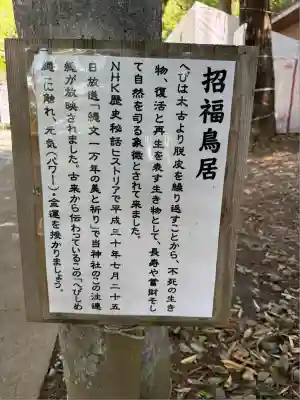 招福鳥居
へびは太古より脱皮を繰り返すことから、不死の生き
物、復活と再生を表す生き物として、長寿や富財そし
て自然を司る象徴とされて来ました。
NHK歴史秘話ヒストリアで平成三十年七月二十五
日放送「縄文一万年の美と祈り」で当神社のこの注連
縄が放映されました。古来から伝わっているこの「へびしめ
縄」に触れ、元気(パワー)・金運を授かりましょう。